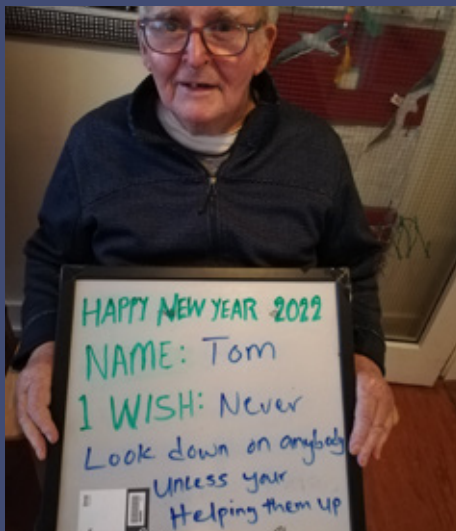 HAPPY NEW YEAR 2022
NAME: Tom
1 WISH: Never
Look down on anybody
Unless your
Helping them up